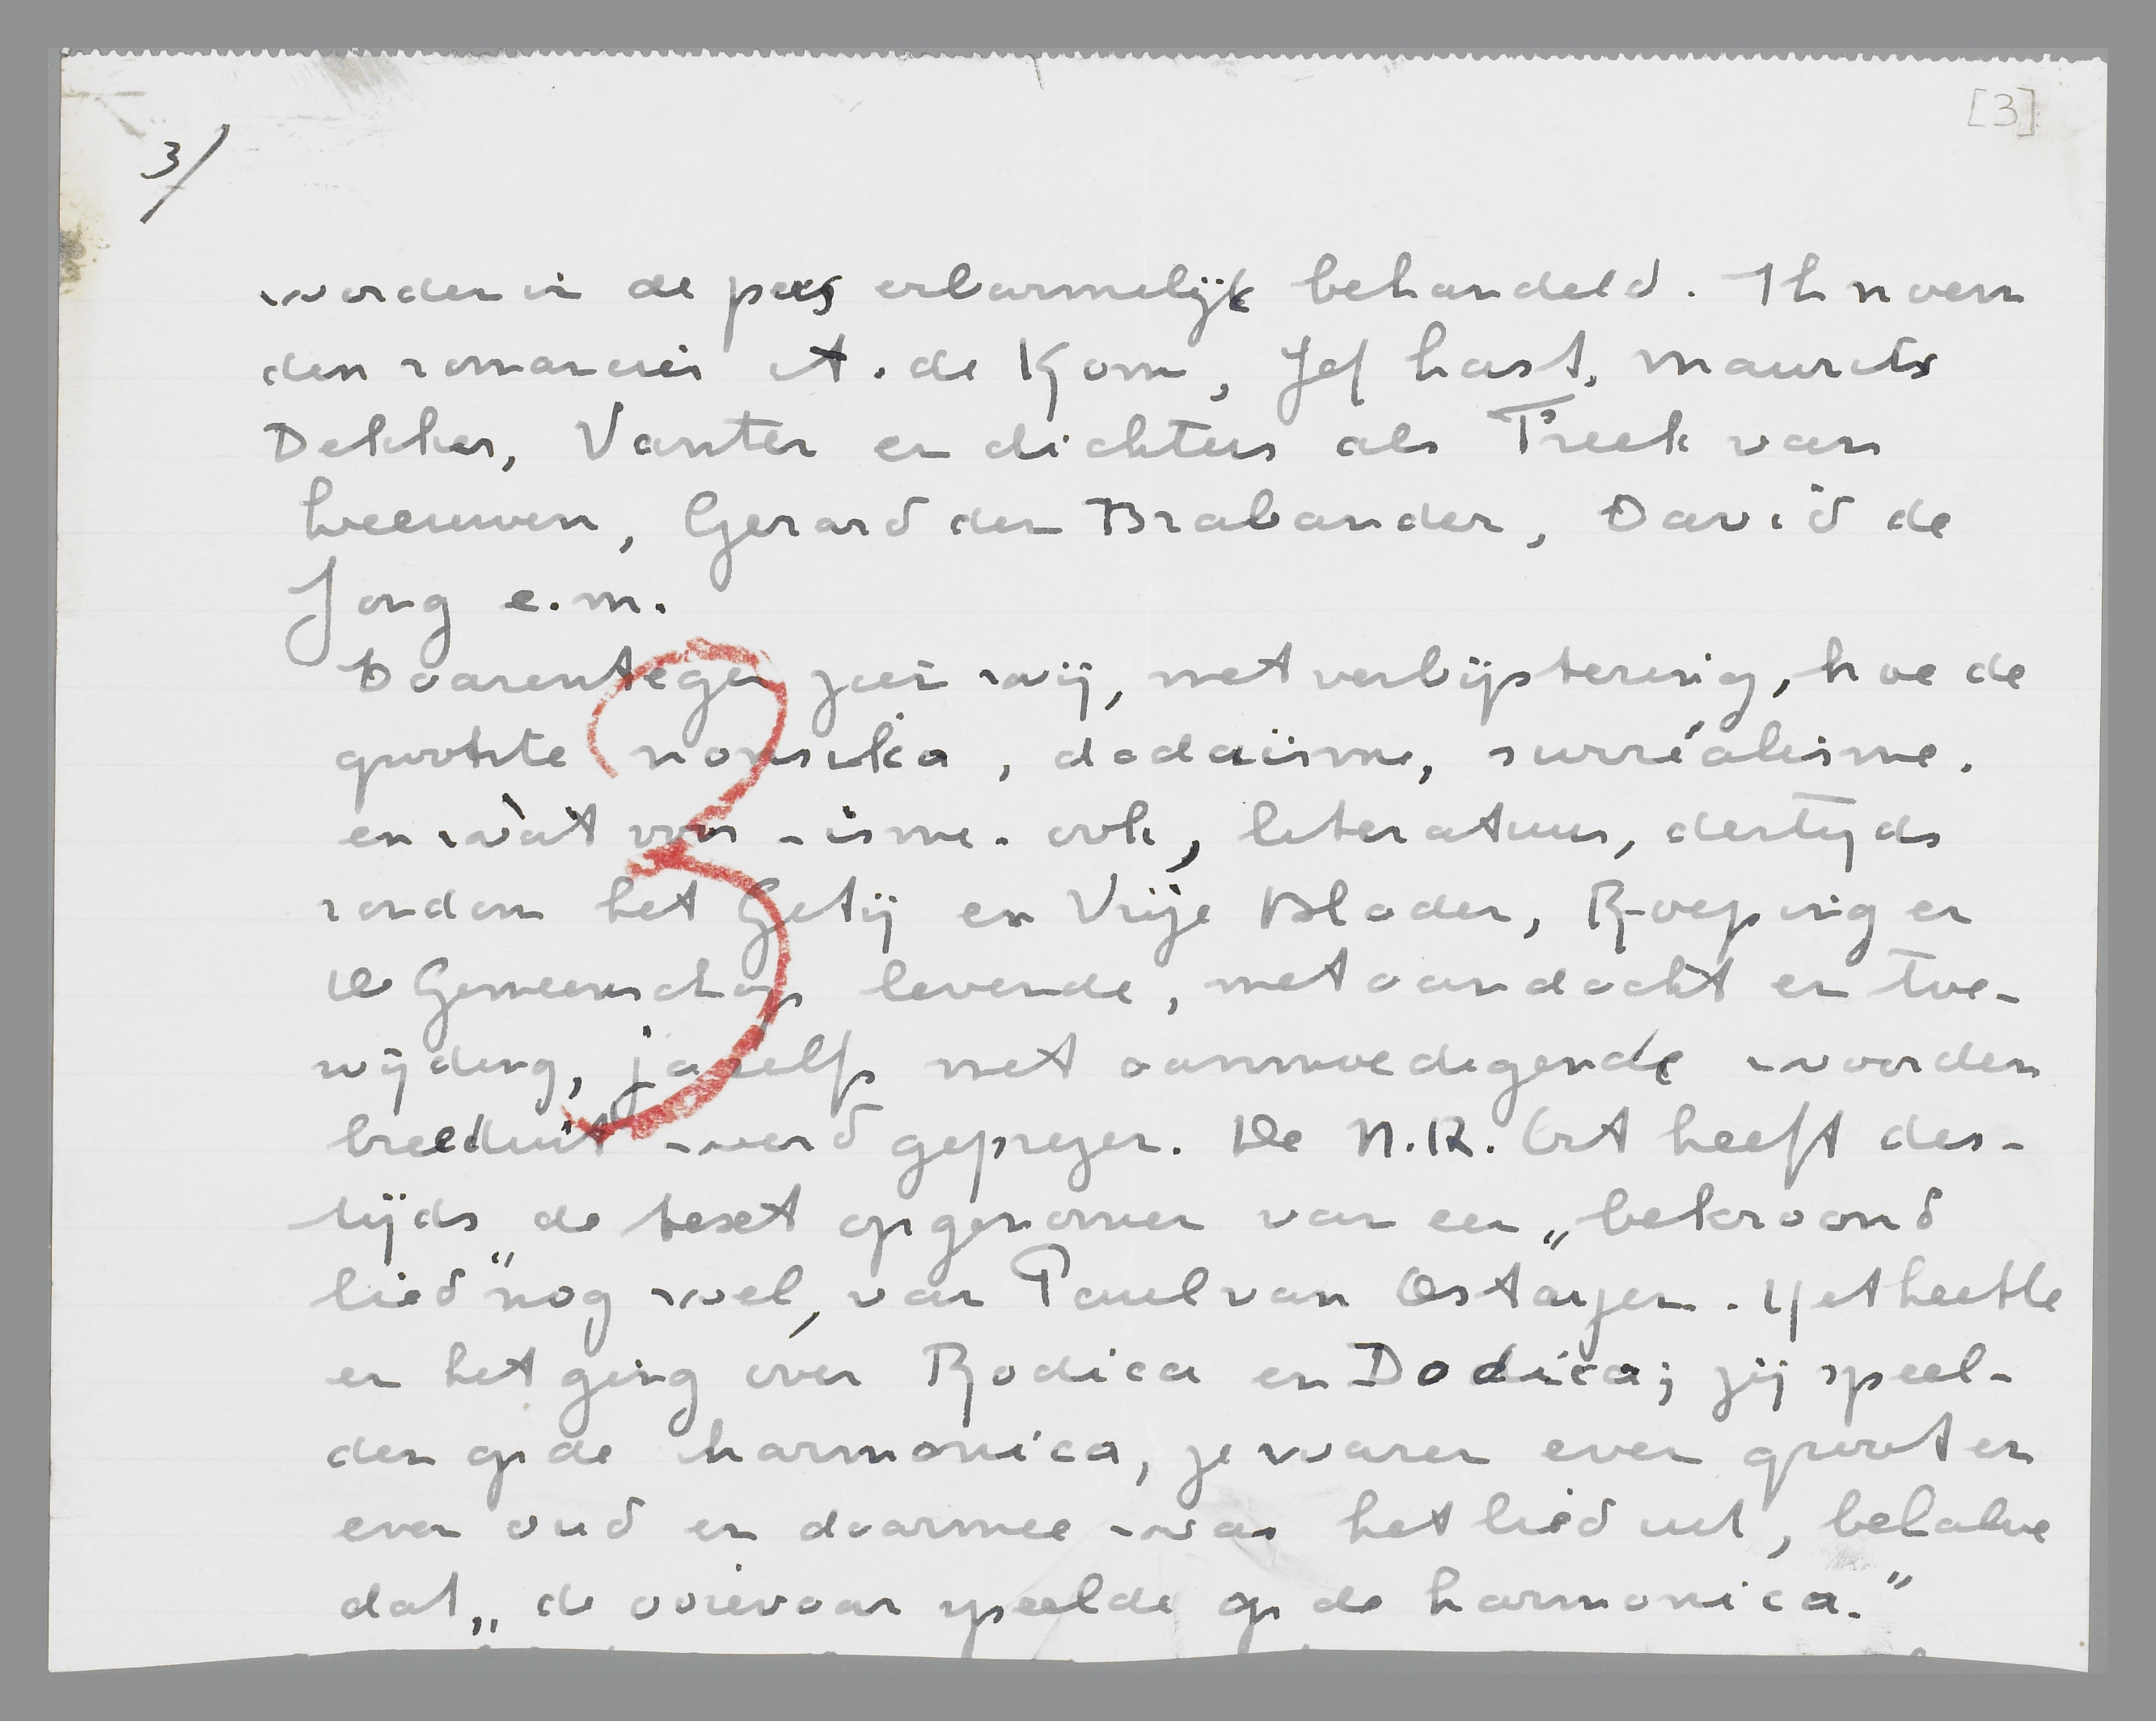 [3]
3/
worden in de pers erbarmelijk behandeld. Ik noem
den romancier A. de Kom, Jef Last, Maurits
Dekker, Vanter en dichters als Freek van
Leeuwen, Gerard den Brabander, David de
Jong e.m.
Daarentegen zien wij, met verbijstering, hoe de
grootste nonsika, dadaïsme, surréalisme.
en wat voor -isme- ook, literatuur, destijds
rondom het Getij en Vrije Bladen, Roeping en
De Gemeenschap levende, met aandacht en toe-
wijding, ja zelfs met aanmoedigende woorden
breeduit werd geprezen. De N.R. Crt heeft des-
tijds de text opgenomen van een „bekroond
lied" nog wel, van Paul van Ostayen. Het heette
en het ging over Rodica en Dodica; zij speel-
den op de harmonica, ze waren even groot en
even oud en daarmee was het lied uit, behalve
dat „de ooievaar speelde op de harmonica."
3